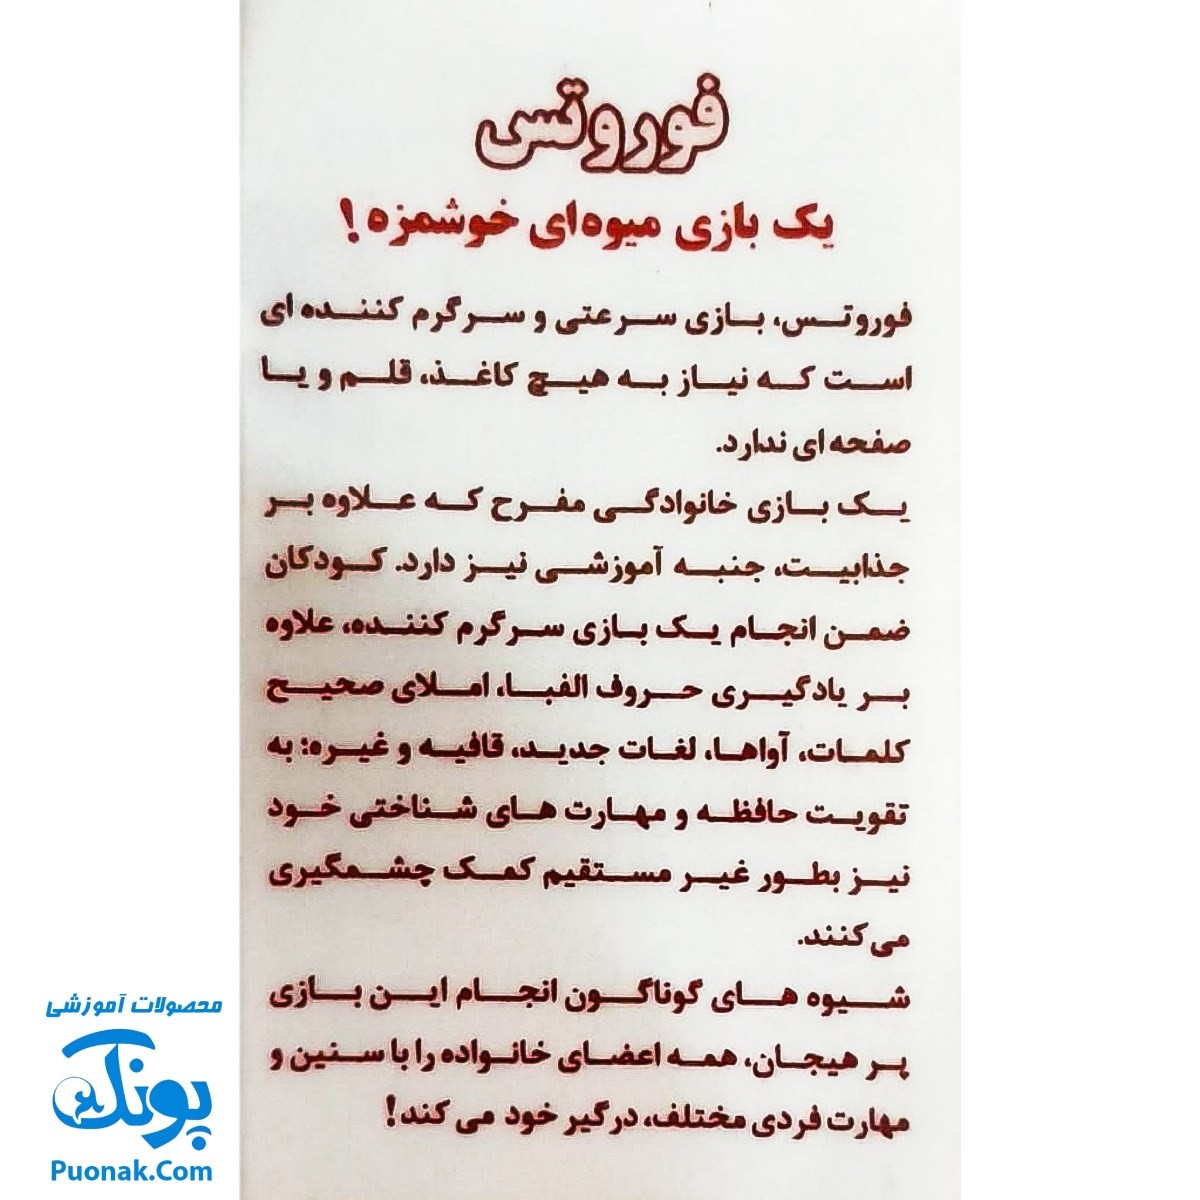 فوروتس
یک بازی میوه‌ای خوشمزه!
فوروتس، بازی سرعتی و سرگرم کننده ای
است که نیاز به هیچ کاغذ، قلم و یا
صفحه ای ندارد.
یک بازی خانوادگی مفرح که علاوه بر
جذابیت، جنبه آموزشی نیز دارد. کودکان
ضمن انجام یک بازی سرگرم کننده، علاوه
بر یادگیری حروف الفبا، املای صحیح
کلمات، آواها، لغات جدید، قافیه و غیره: به
تقویت حافظه و مهارت های شناختی خود
نیز بطور غیر مستقیم کمک چشمگیری
می کنند.
شیوه های گوناگون انجام این بازی
پر هیجان، همه اعضای خانواده را با سنین و
مهارت فردی مختلف، درگیر خود می کند!
محصولات آموزشی
پونک
Puonak.Com